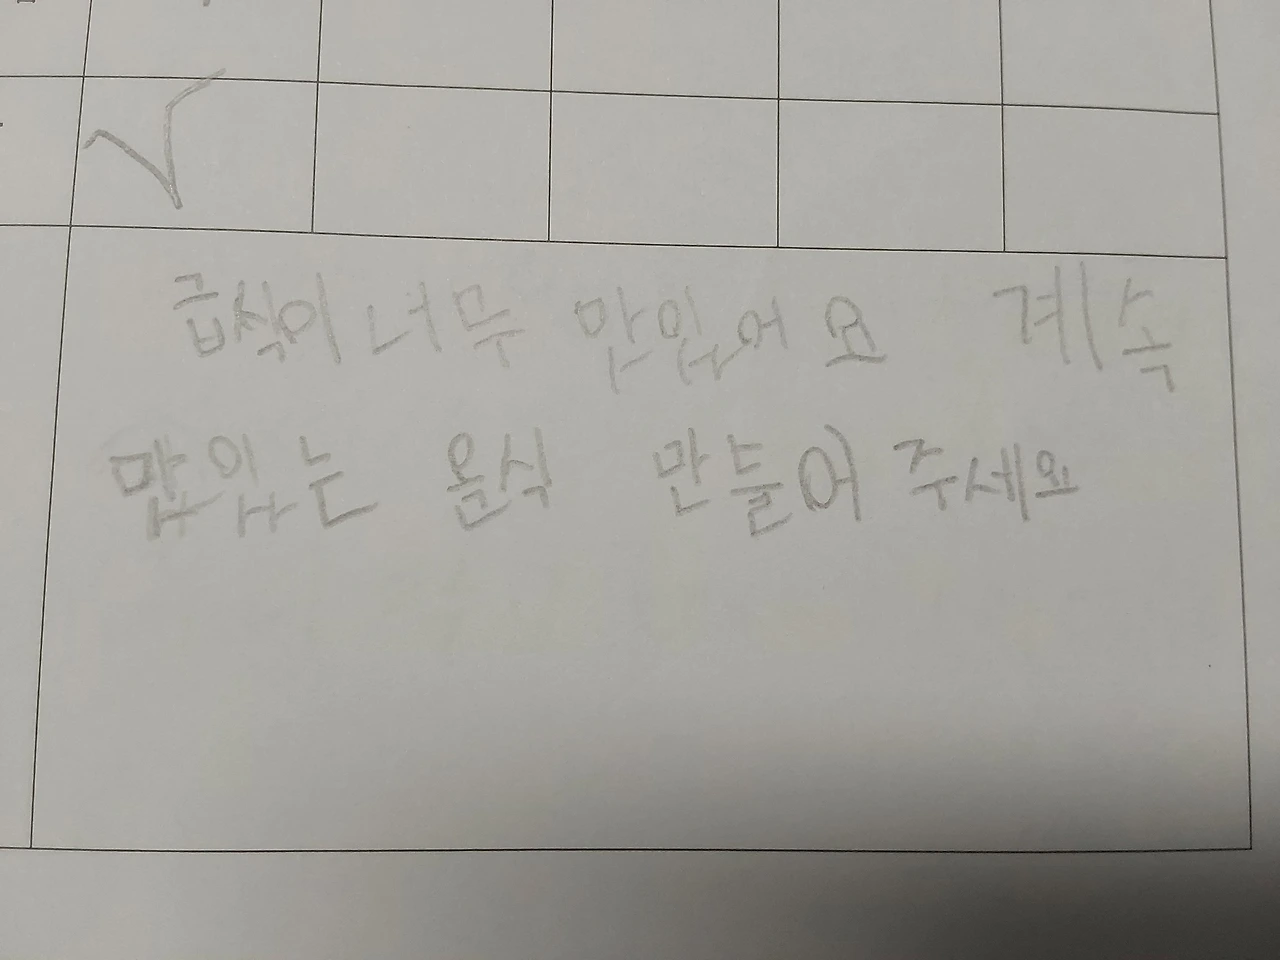 급식이 너무 맛있어요 계속
맜있는 음식 만들어 주세요